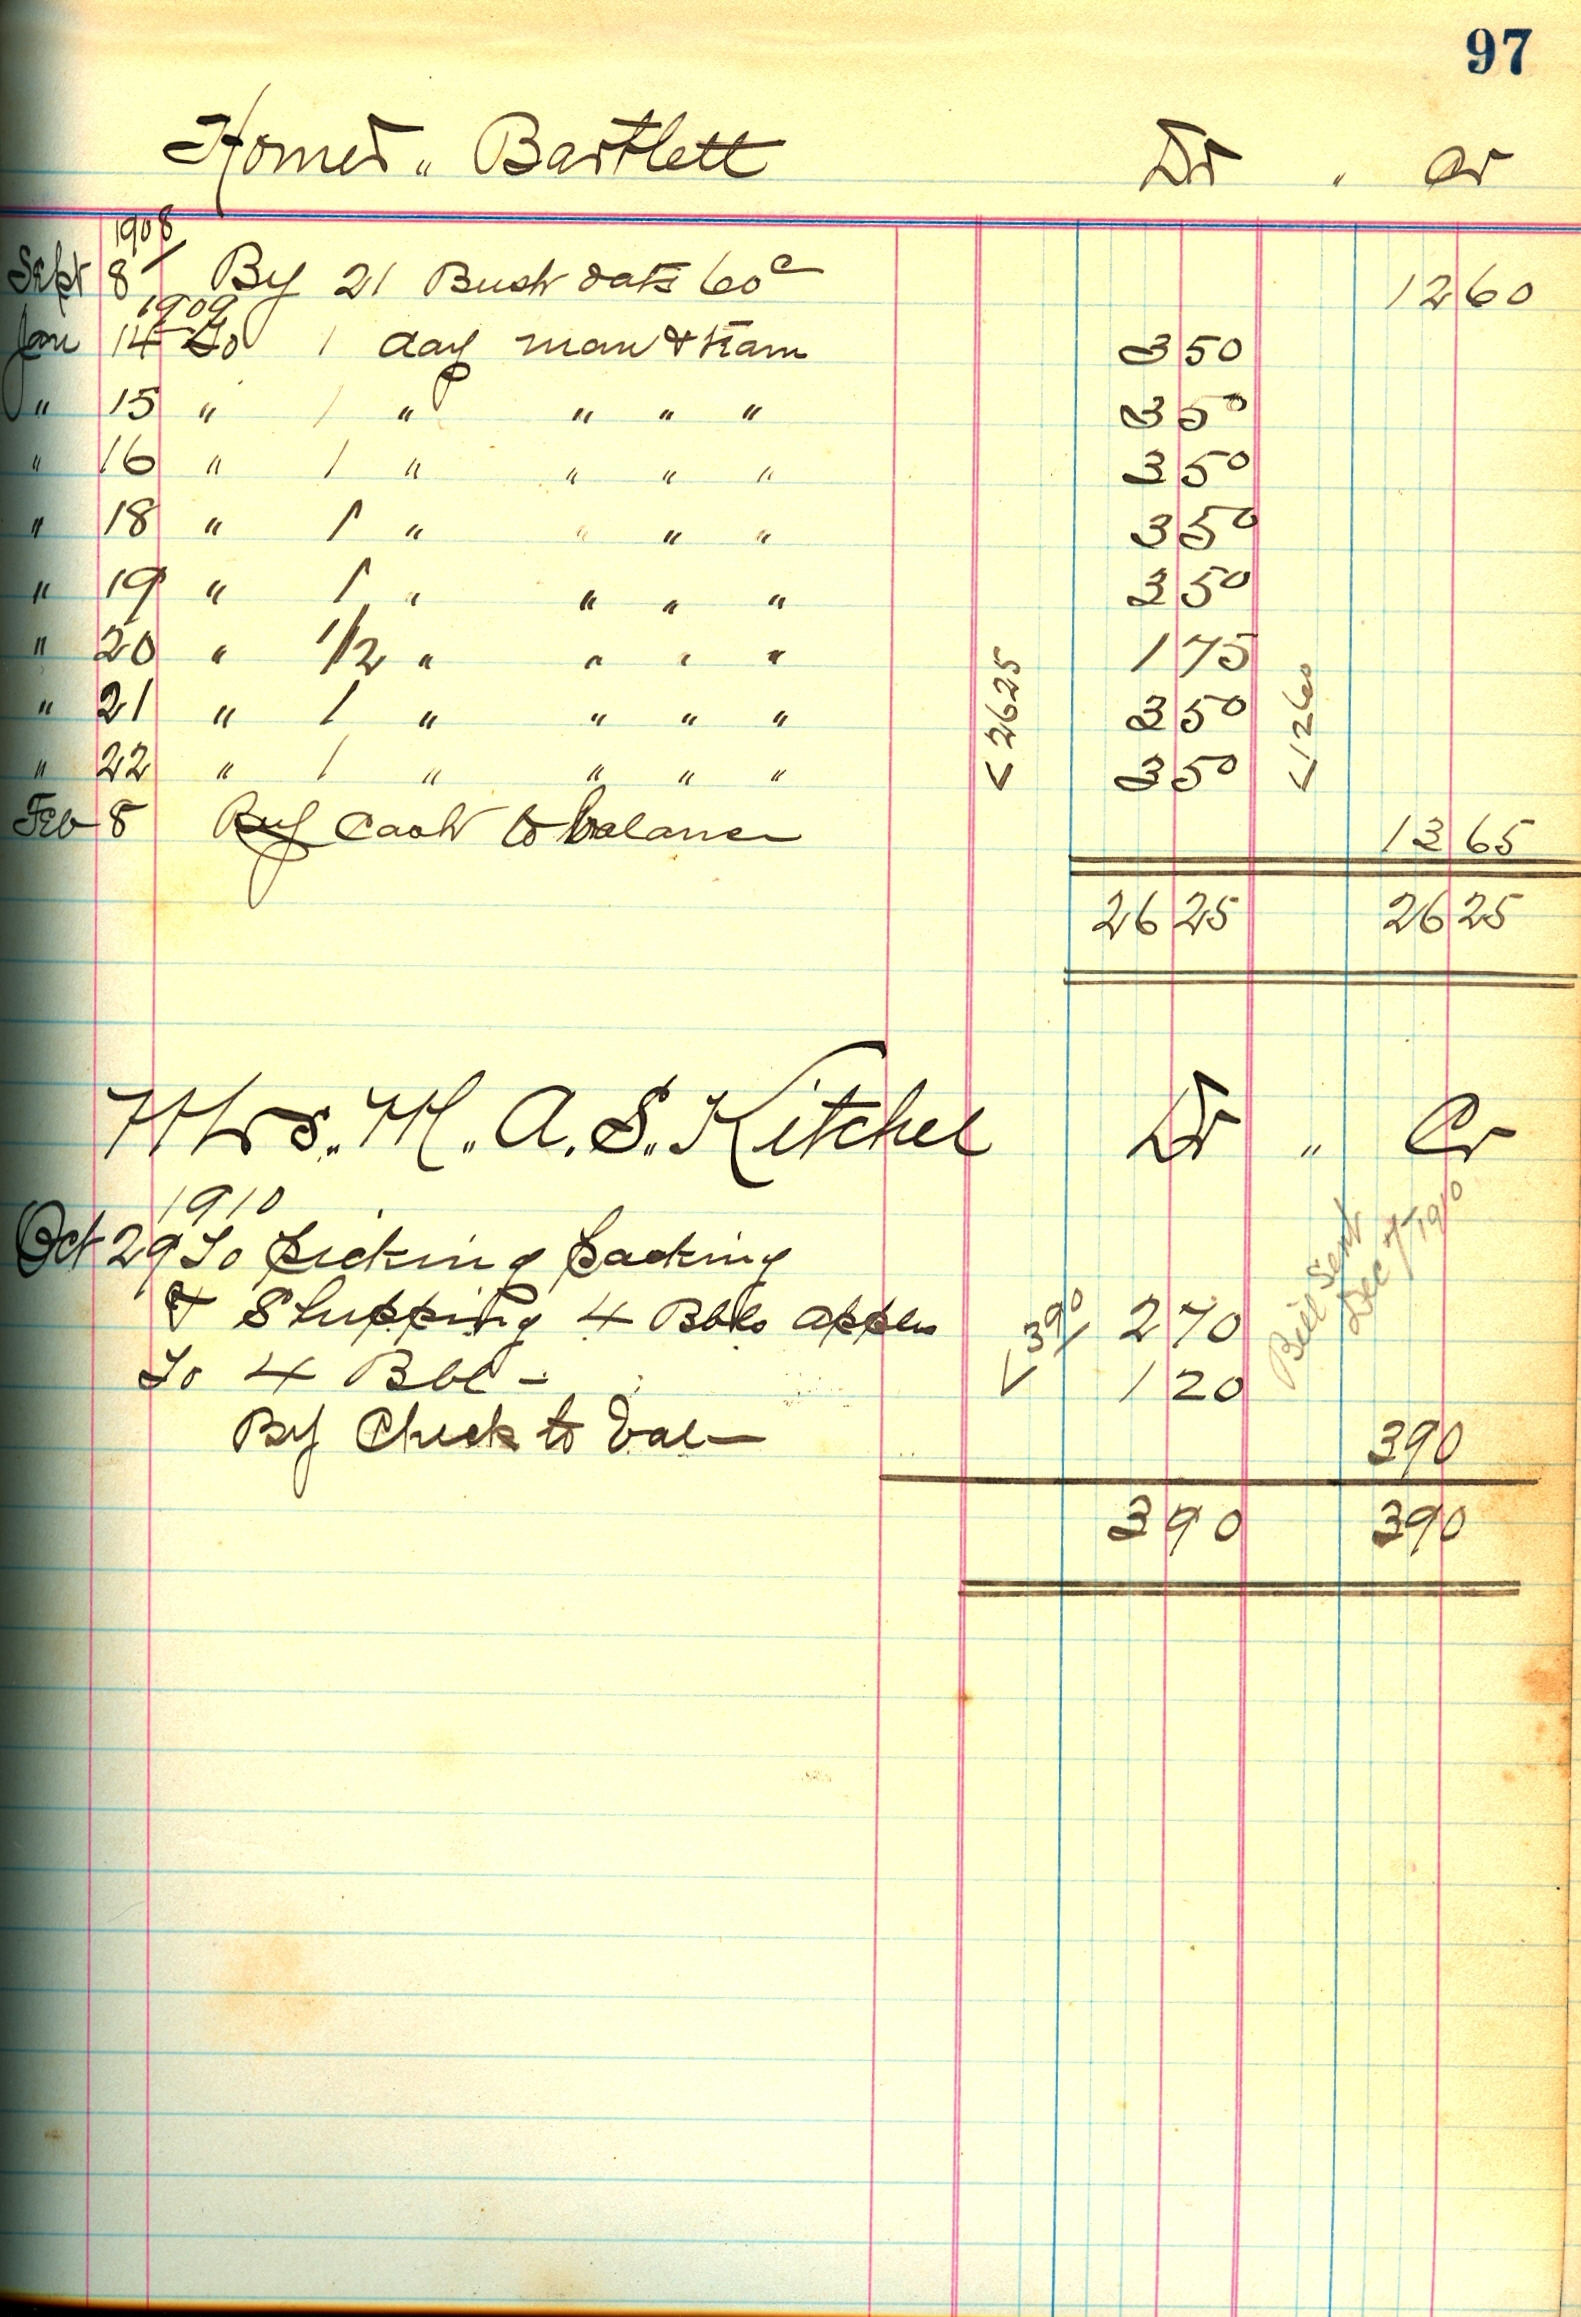 97
Homer " Bartlett Dr " Cr
1908
Sept 8 By 21 Bush oats 60c 12 60
1909
Jan 14 To 1 day man & team 3 50
" 15 " 1 " " " " 3 50
" 16 " 1 " " " " 3 50
" 18 " 1 " " " " 3 50
" 19 " 1 " " " " 3 50
" 20 " 1/2 " " " " 1 75
" 21 " 1 " " " " 3 50
" 22 " 1 " " " " 3 50
< 2625
< 1260
Feb 8 By Cash to balance 13 65
26 25 26 25
Mrs. M. A. S. Kitchel Dr " Cr
1910
Oct 29 To picking packing
& Shipping 4 Bbls apples 2 70
< 390
Bill Sent
Dec 7 1910
To 4 Bbl - 1 20
By Check to bal - 3 90
3 90 3 90